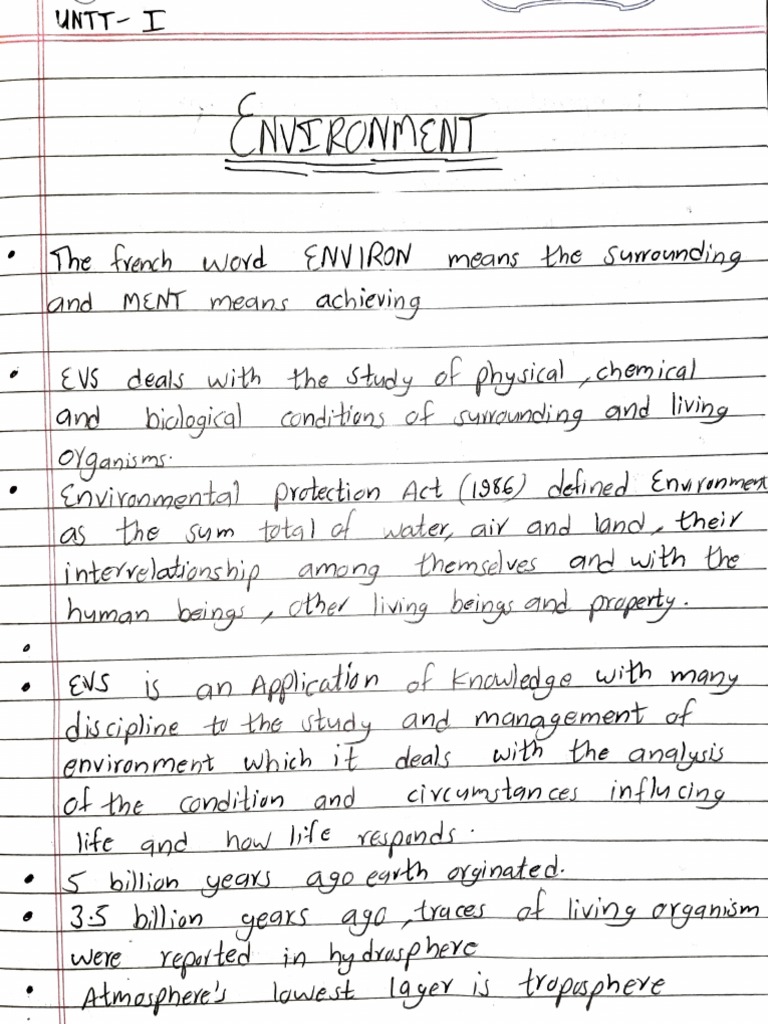 UNTT- I
ENVIRONMENT
• The french word ENVIRON means the surrounding
and MENT means achieving
• EVS deals with the study of physical, chemical
and biological conditions of surrounding and living
organisms.
• Environmental protection Act (1986) defined Environment
as the sum total of water, air and land, their
interrelationship among themselves and with the
human beings, other living beings and property.
•
• EVS is an Application of knowledge with many
discipline to the study and management of
environment which it deals with the analysis
of the condition and circumstances influcing
life and how life responds.
• 5 billion years ago earth orginated.
• 3.5 billion years ago, traces of living organism
were reported in hydrosphere
• Atmosphere's lowest layer is troposphere